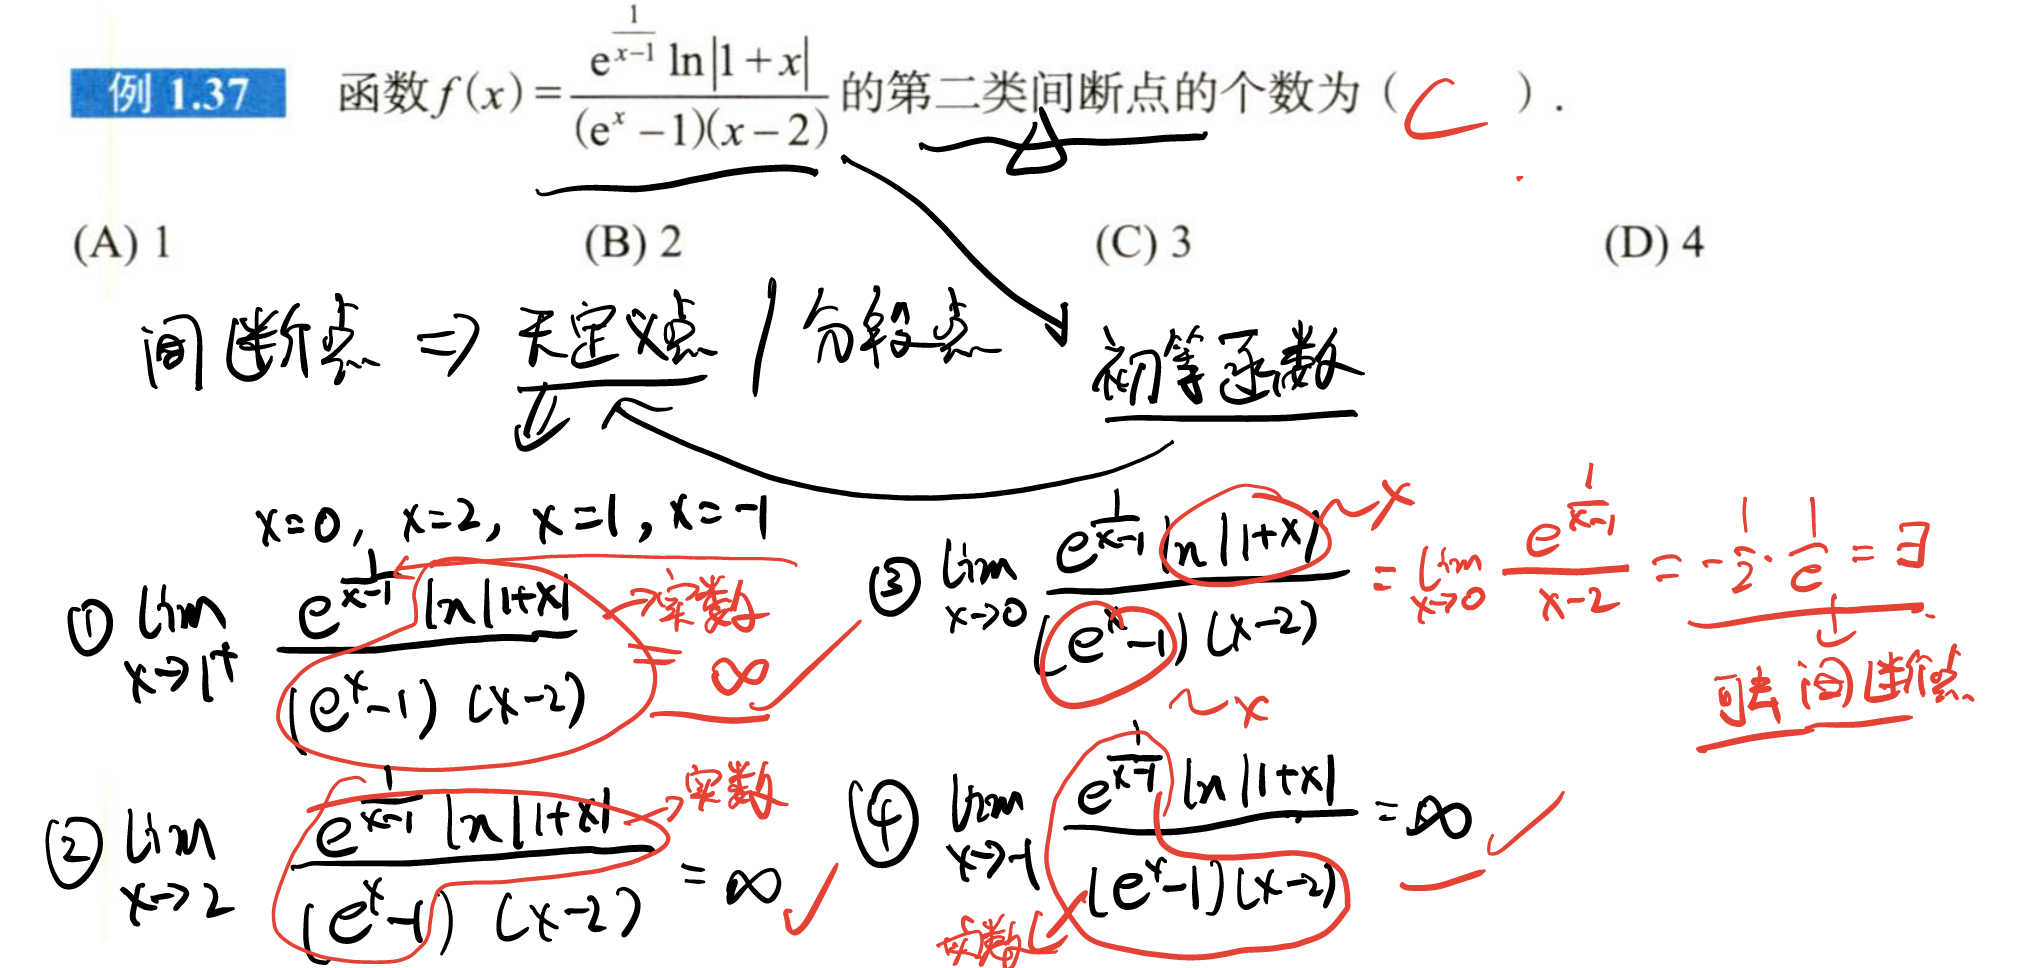 例 1.37 函数 f(x) = \frac{e^{\frac{1}{x-1}} ln|1+x|}{(e^x-1)(x-2)} 的第二类间断点的个数为 ( C ) .
(A) 1 (B) 2 (C) 3 (D) 4
间断点 ⇒ 无定义点 / 分段点 初等函数
x=0, x=2, x=1, x=-1
① lim_{x→1^+} \frac{e^{\frac{1}{x-1}} ln|1+x|}{(e^x-1)(x-2)} → 实数 = ∞ ✓
② lim_{x→2} \frac{e^{\frac{1}{x-1}} ln|1+x|}{(e^x-1)(x-2)} → 实数 = ∞ ✓
③ lim_{x→0} \frac{e^{\frac{1}{x-1}} ln|1+x|}{(e^x-1)(x-2)} ~x ~x = lim_{x→0} \frac{e^{\frac{1}{x-1}}}{x-2} = -\frac{1}{2}·\frac{1}{e} = ∃
可去间断点
④ lim_{x→-1} \frac{e^{\frac{1}{x-1}} ln|1+x|}{(e^x-1)(x-2)} = ∞ ✓
实数